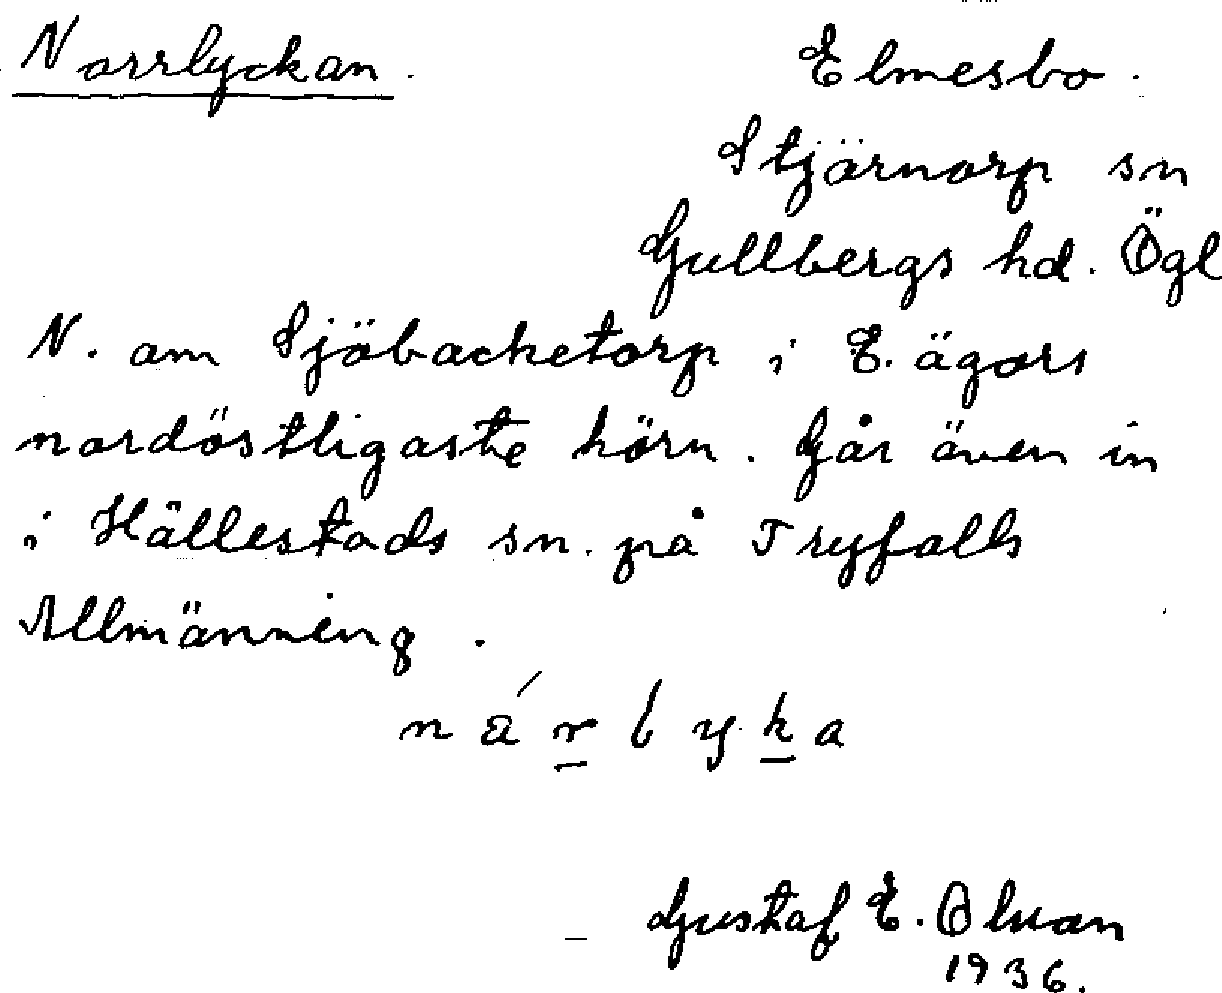 Norrlyckan. Elmesbo.
Stjärnorp sn
Gullbergs hd. Ögl
N. om Sjöbacketorp i E. ägors
nordöstligaste hörn. Går även in
i Hällestads sn. på Tryfalls
Allmänning.
Gustaf E. Olsson
1936.